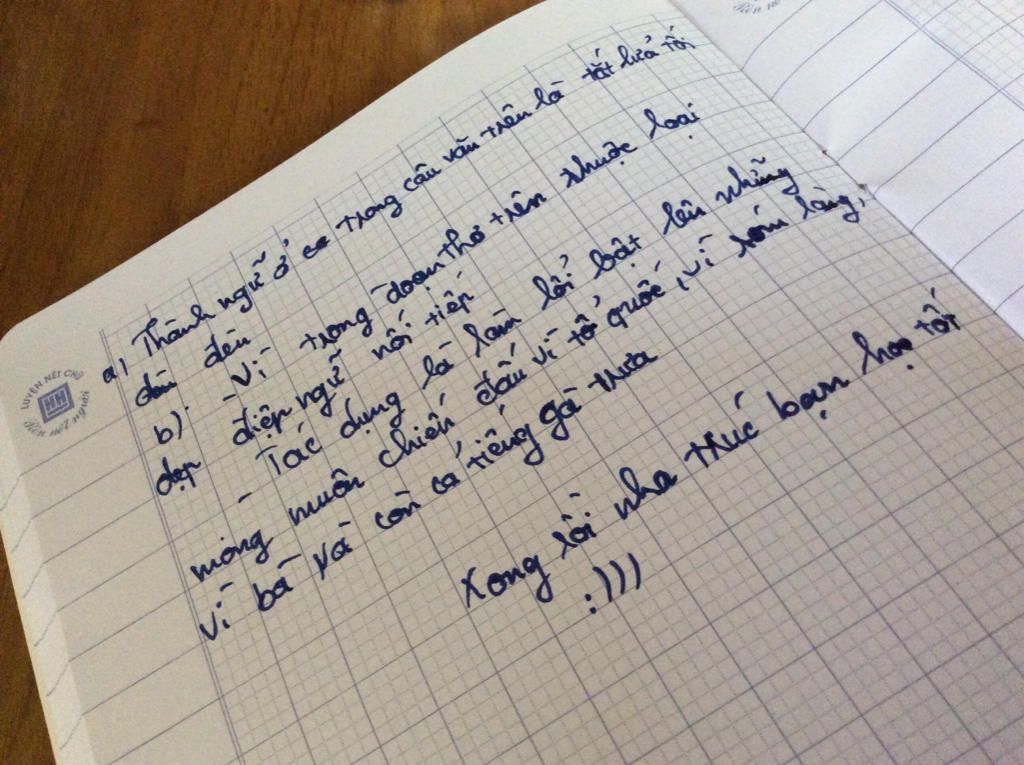 a) Thành ngữ ở ca trong câu văn trên là tắt lửa tối
đèn
b). - Vì trong đoạn thơ trên thuộc loại
điệp ngữ nối tiếp
- Tác dụng là làm lổi bật lên những
mong muốn chiến đấu vì tổ quốc, vì xóm làng,
vì bà và còn cả tiếng gà trưa
Xong rồi nha chúc bạn học tốt
:)))
LUYỆN NÉT CHỮ
HH
Rèn nết người
nết